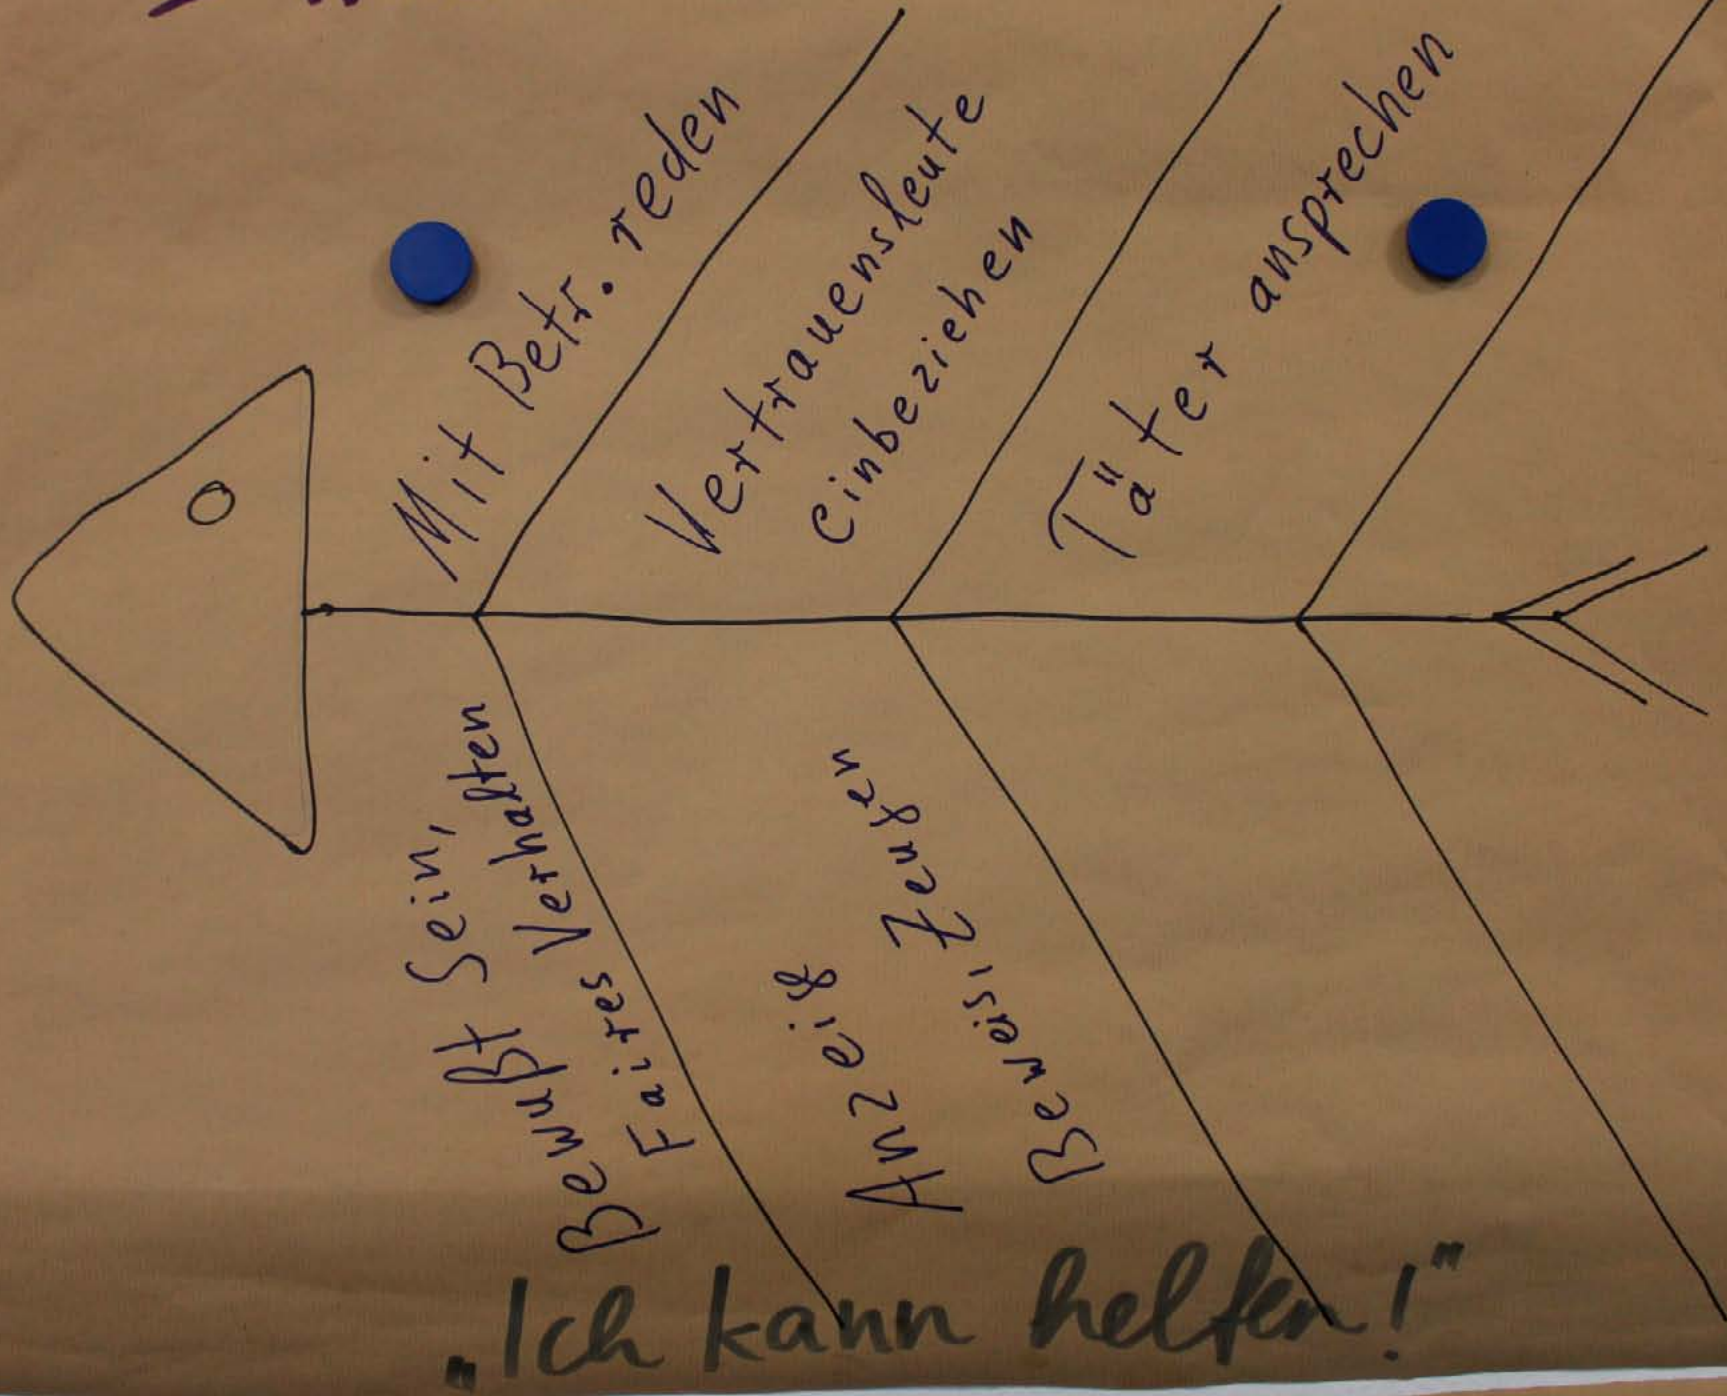 Mit Betr. reden
Vertrauensleute
einbeziehen
Täter ansprechen
Bewußt Sein,
Faires Verhalten
Anzeig
Beweis, Zeugen
„Ich kann helfen!"